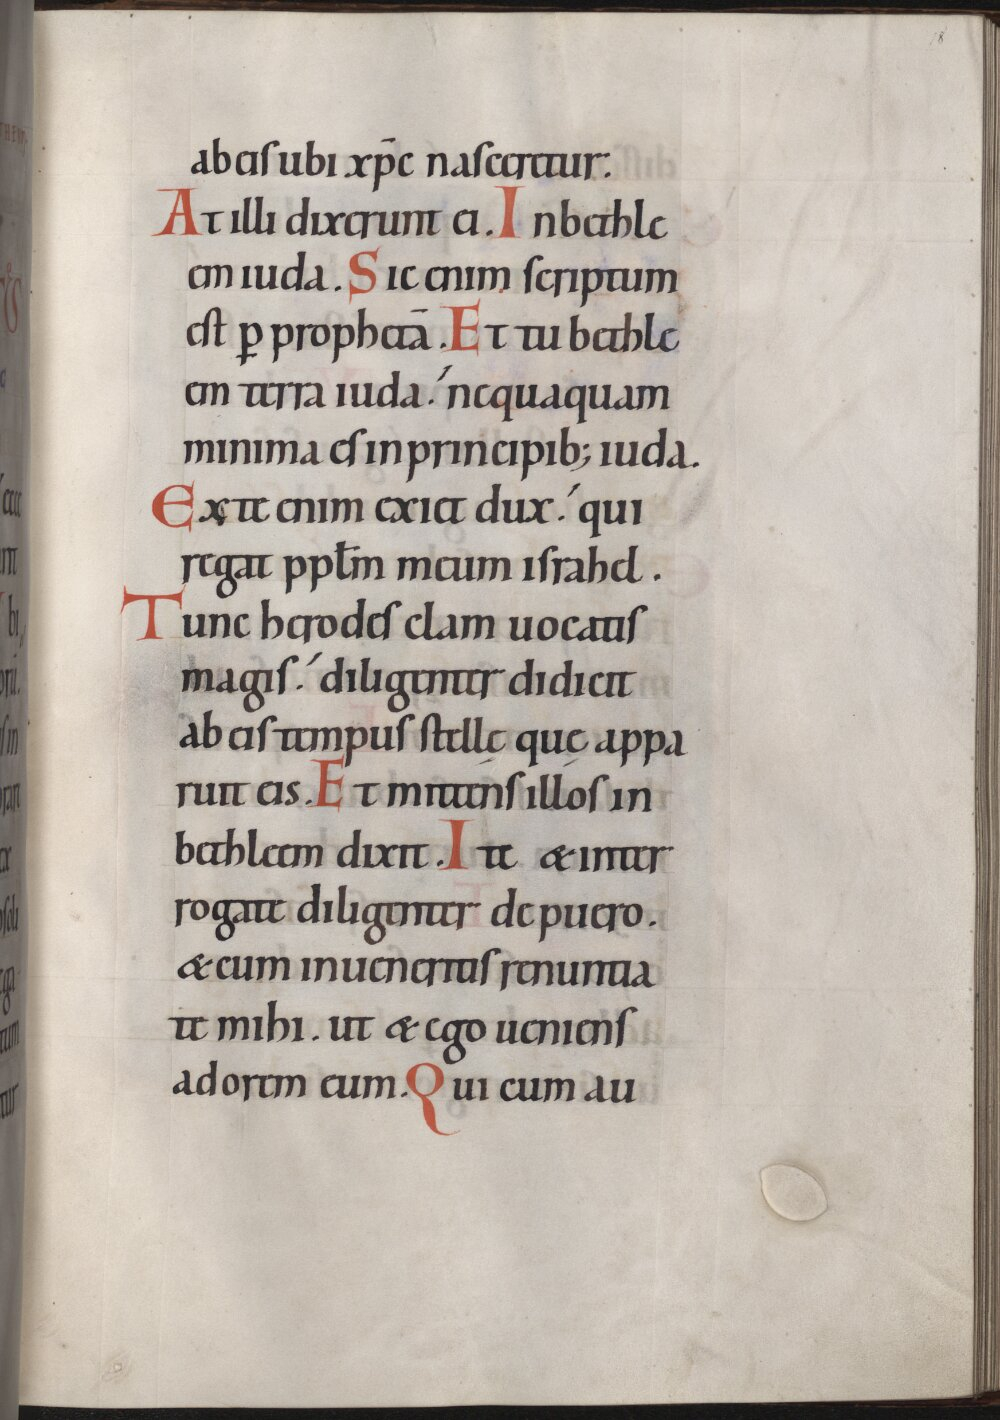 18
ab eis ubi xp̄c nasceretur.
At illi dixerunt ei. In bethle
em iuda. Sic enim scriptum
est ꝑ prophetā. Et tu bethle
em terra iuda. nequaquam
minima es in principib; iuda.
Ex te enim exiet dux. qui
regat pplm̄ meum israhel.
Tunc herodes clam uocatis
magis. diligenter didicit
ab eis tempus stellę quę appa
ruit eis. Et mittens illos in
bethleem dixit. Ite & inter
rogate diligenter de puero.
& cum inueneritis renuntia
te mihi. ut & ego ueniens
adorem eum. Qui cum au